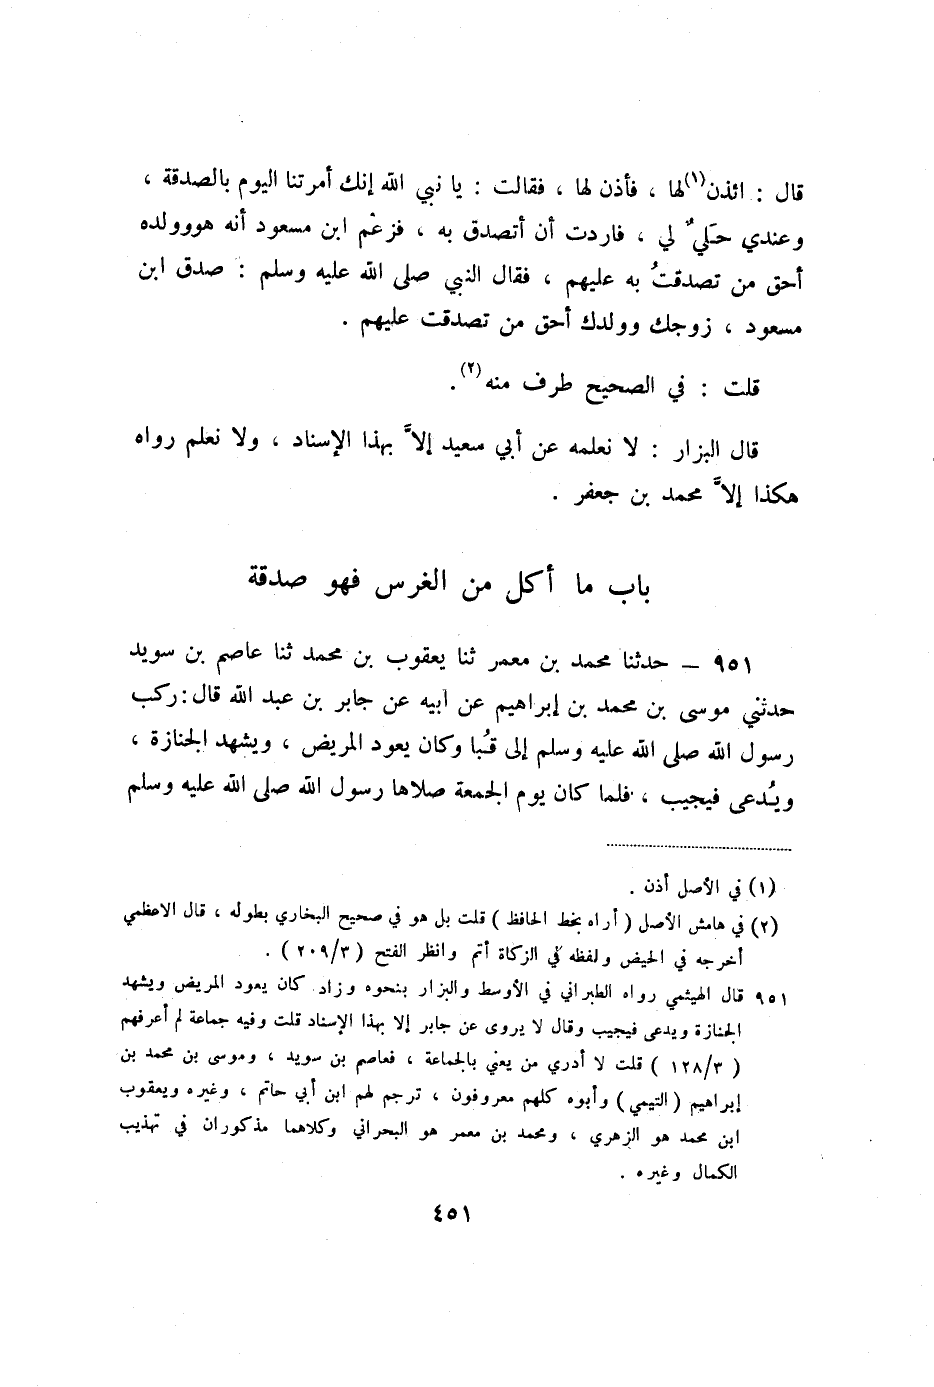 قال : ائذن(١) لها ، فأذن لها ، فقالت : يا نبي الله إنك أمرتنا اليوم بالصدقة ،
وعندي حَلي لي ، فاردت أن أتصدق به ، فزعْم ابن مسعود أنه هووولده
أحق من تصدقتُ به عليهم ، فقال النبي صلى الله عليه وسلم : صدق ابن
مسعود ، زوجك وولدك أحق من تصدقت عليهم .
قلت : في الصحيح طرف منه(٢) .
قال البزار : لا نعلمه عن أبي سعيد إلاَّ بهذا الإسناد ، ولا نعلم رواه
هكذا إلاَّ محمد بن جعفر .
باب ما أكل من الغرس فهو صدقة
٩٥١ ــ حدثنا محمد بن معمر ثنا يعقوب بن محمد ثنا عاصم بن سويد
حدثني موسى بن محمد بن إبراهيم عن ابيه عن جابر بن عبد الله قال : ركب
رسول الله صلى الله عليه وسلم إلى قُبا وكان يعود المريض ، ويشهد الجنازة ،
ويُدعى فيجيب ، فلما كان يوم الجمعة صلاها رسول الله صلى الله عليه وسلم
(١) في الأصل أذن .
(٢) في هامش الأصل ( أراه بخط الحافظ ) قلت بل هو في صحيح البخاري بطوله ، قال الاعظمي
أخرجه في الحيض ولفظه في الزكاة أتم وانظر الفتح ( ٢٠٩/٣ ) .
٩٥١ قال الهيثمي رواه الطبراني في الأوسط والبزار بنحوه وزاد كان يعود المريض ويشهد
الجنازة ويدعى فيجيب وقال لا يروى عن جابر إلا بهذا الإسناد قلت وفيه جماعة لم أعرفهم
( ١٢٨/٣ ) قلت لا أدري من يعني بالجماعة ، فعاصم بن سويد ، وموسى بن محمد بن
إبراهيم ( التيمي ) وأبوه كلهم معروفون ، ترجم لهم ابن أبي حاتم ، وغيره ويعقوب
ابن محمد هو الزهري ، ومحمد بن معمر هو البحراني وكلاهما مذكوران في تهذيب
الكمال وغيره .
٤٥١